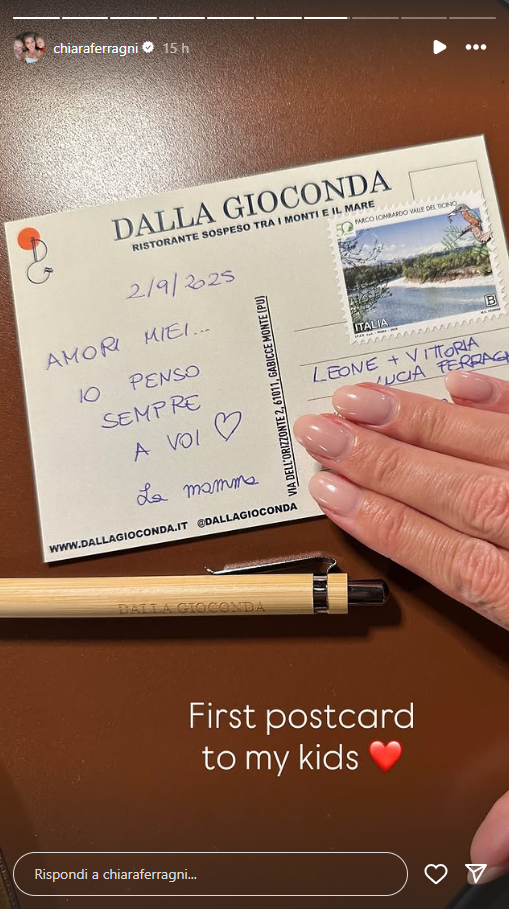 chiaraferragni
15 h
DALLA GIOCONDA
RISTORANTE SOSPESO TRA I MONTI E IL MARE
PARCO LOMBARDO VALLE DEL TICINO
ITALIA
B
2/9/2025
AMORI MIEI...
IO PENSO
SEMPRE
A VOI ♡
La mamma
VIA DELL'ORIZZONTE 2, 61011, GABICCE MONTE (PU)
LEONE + VITTORIA
LUCIA FERRAGN
WWW.DALLAGIOCONDA.IT @DALLAGIOCONDA
DALLA GIOCONDA
First postcard
to my kids ❤️
Rispondi a chiaraferragni...